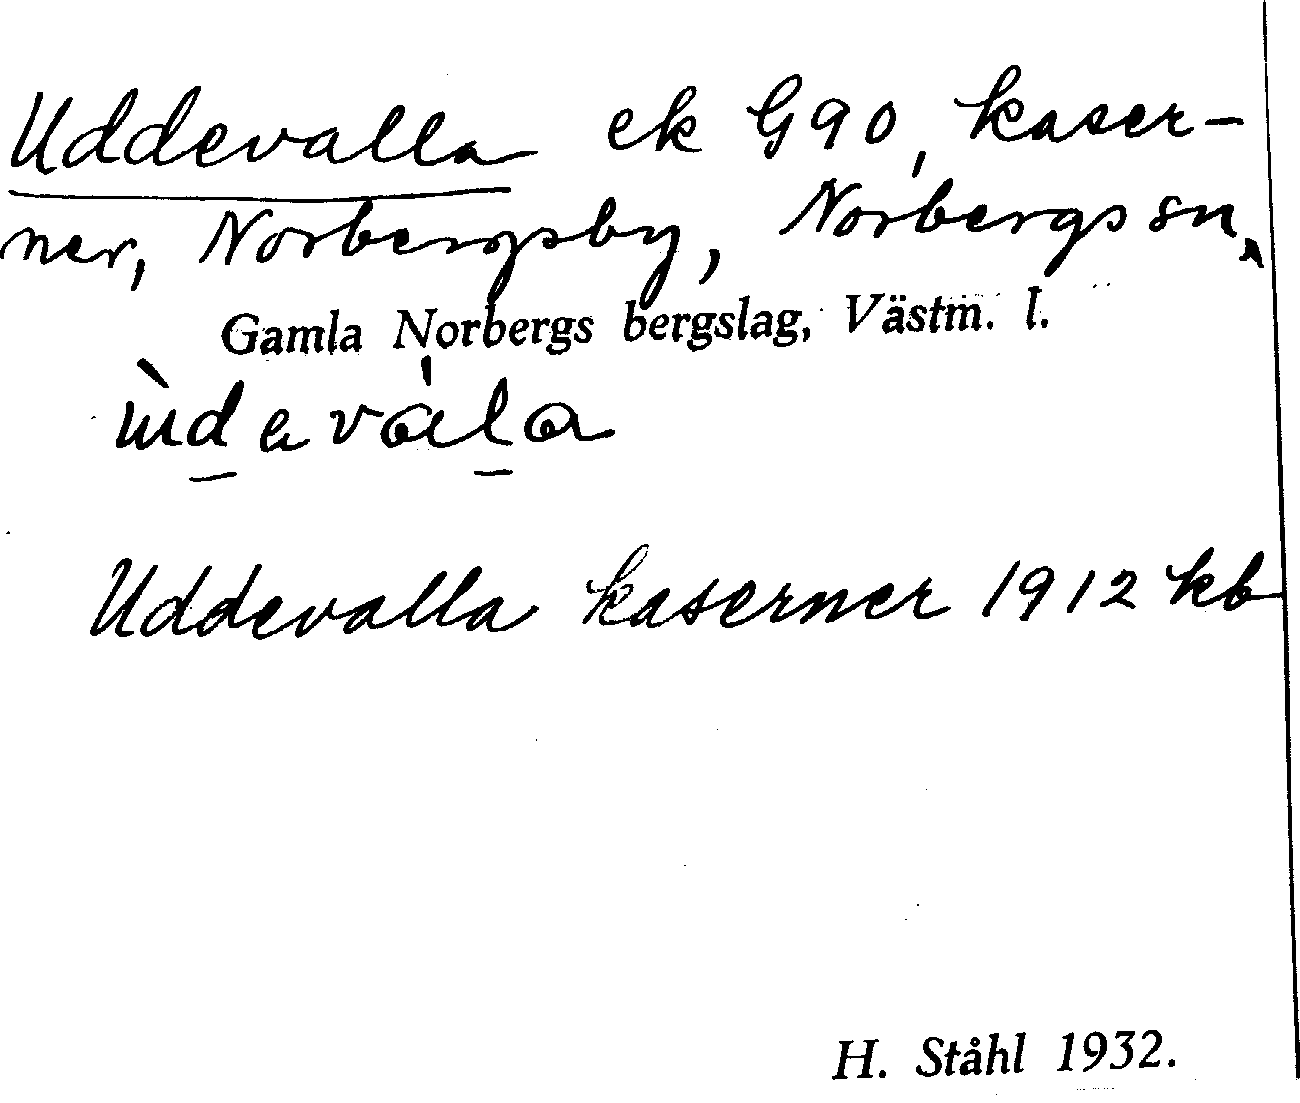 Uddevalla ek G90, kaser-
ner, Norbergsby, Norbergs sn,
Gamla Norbergs bergslag, Västm. l.
Uddevalla kaserner 1912 kb
H. Ståhl 1932.